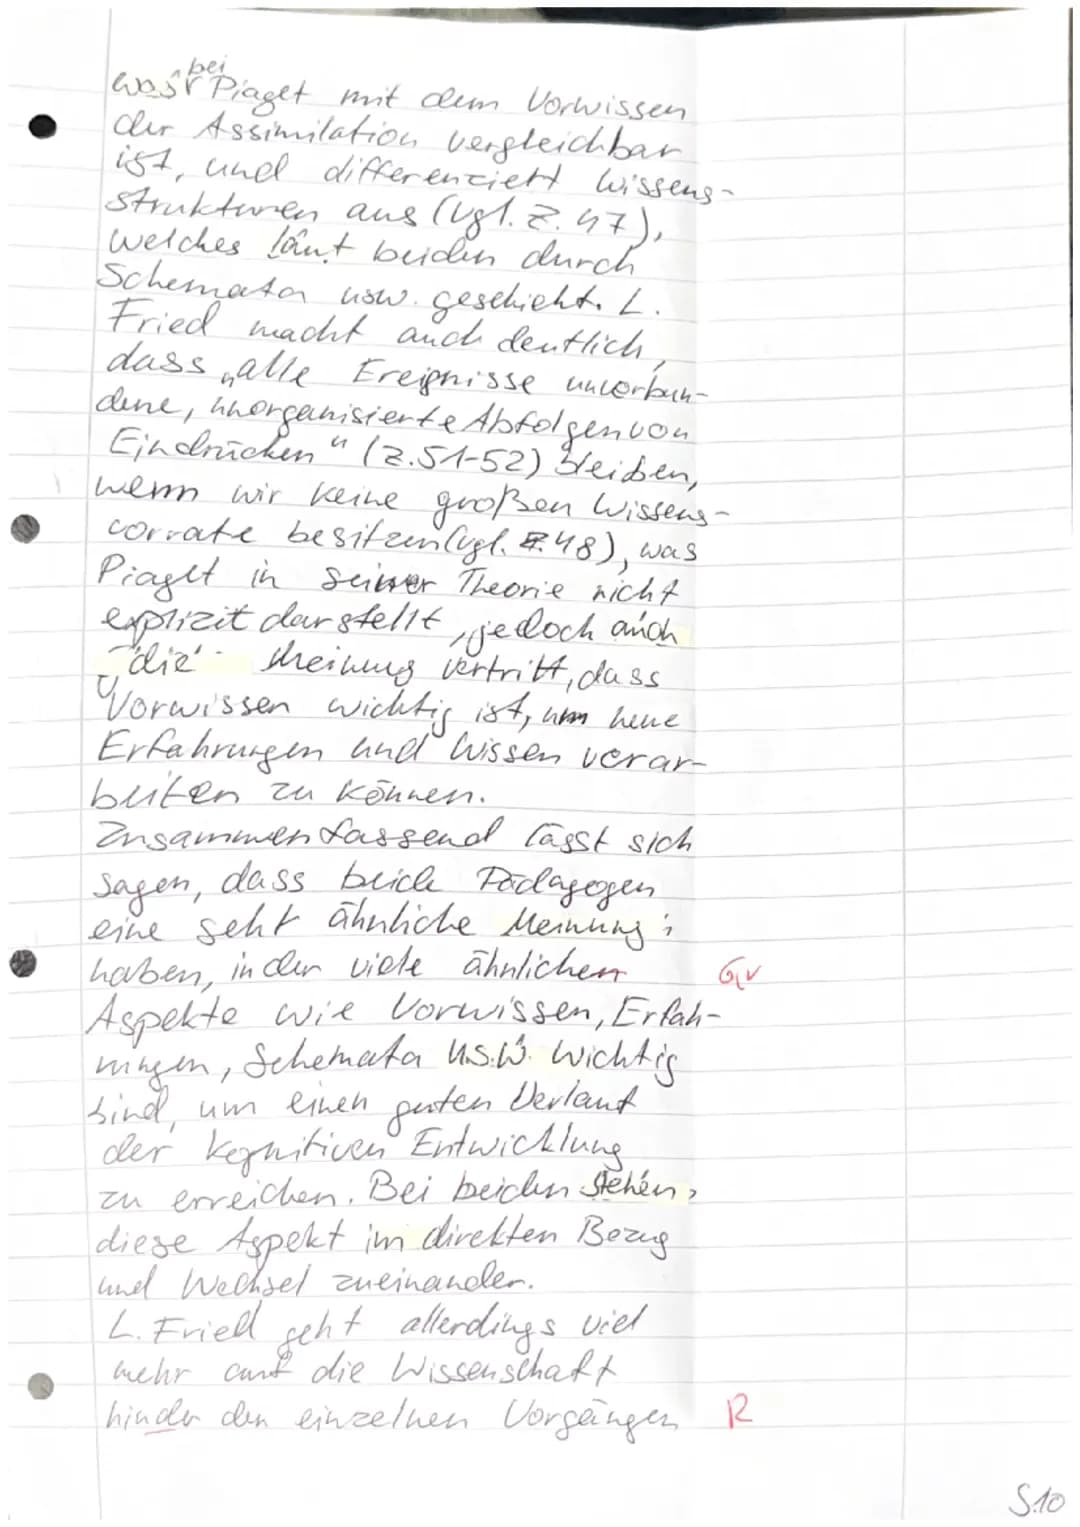 was bei Piaget mit dem Vorwissen
der Assimilation vergleichbar
ist, und differenziert Wissens-
strukturen aus (vgl. Z. 47),
welches laut beiden durch
Schemata usw. geschieht. L.
Fried macht auch deutlich,
dass „alle Ereignisse unverbun-
dene, unorganisierte Abfolgen von
Eindrücken" (Z.51-52) bleiben,
wenn wir keine großen Wissens-
vorrate besitzen (vgl. Z.48), was
Piaget in seiner Theorie nicht
explizit darstellt, jedoch auch
die Meinung vertritt, dass
Vorwissen wichtig ist, um neue
Erfahrungen und Wissen verar-
beiten zu können.
Zusammenfassend lässt sich
sagen, dass beide Pädagogen
eine sehr ähnliche Meinung
haben, in der viele ähnlichen Gr
Aspekte wie Vorwissen, Erfah-
rungen, Schemata u.s.w. wichtig
sind, um einen guten Verlauf
der kognitiven Entwicklung
zu erreichen. Bei beiden stehen
diese Aspekt im direkten Bezug
und Wechsel zueinander.
L. Fried geht allerdings viel
mehr auf die Wissenschaft
hinder den einzelnen Vorgängen R
S.10